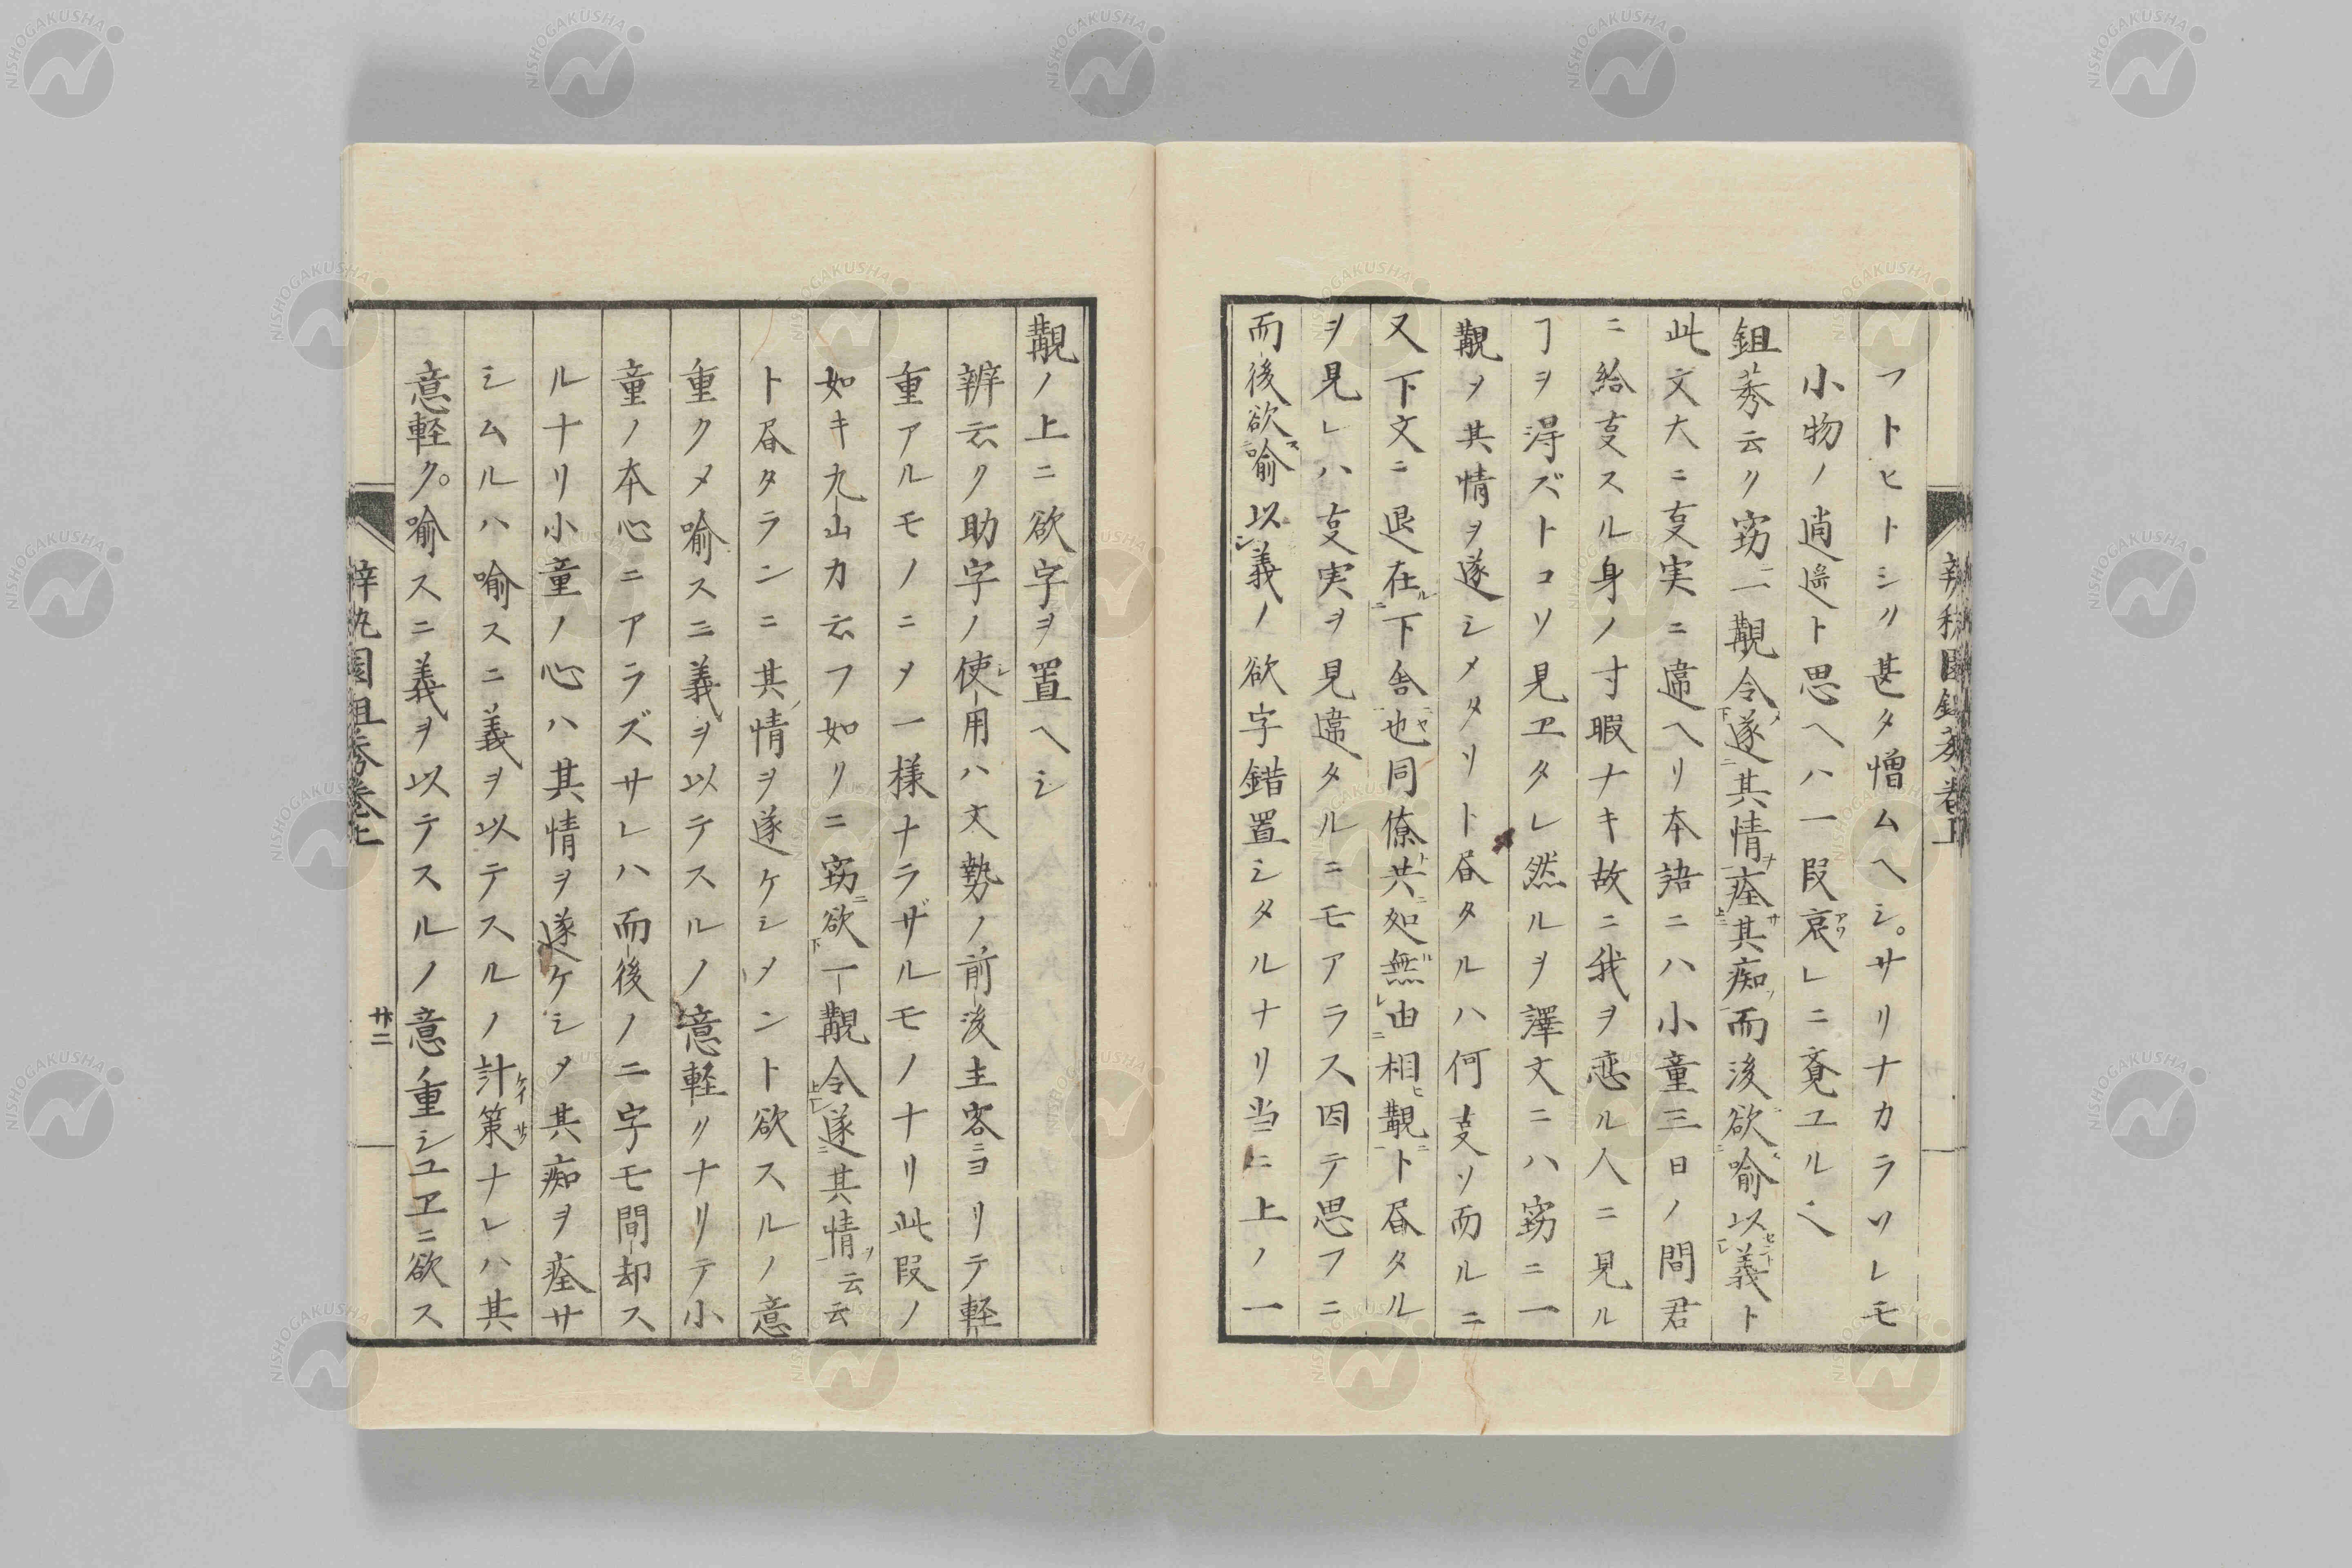 フトヒトシク甚タ憎ムヘシ。サリナカラソレモ
小物ノ逍遥ト思ヘハ一段哀レニ覚ユル也
鉏莠云ク窃ニ一覯令遂其情痊其痴而後欲喩以義ト
此文大ニ叓実ニ違ヘリ本語ニハ小童三日ノ間君
ニ給叓スル身ノ寸暇ナキ故ニ我ヲ恋ル人ニ見ル
ヿヲ得ズトコソ見ヱタレ然ルヲ譯文ニハ窃ニ一
覯メ其情ヲ遂シメタリト昼タルハ何叓ソ而ルニ
又下文ニ退在下舎也同僚共処無由相覯ト昼タル
ヲ見レハ叓実ヲ見違タルニモアラス因テ思フニ
而後欲喩以義ノ欲字錯置シタルナリ当ニ上ノ一
覯ノ上ニ欲字ヲ置ヘシ
辨云ク助字ノ使用ハ文勢ノ前後主客ニヨリテ軽
重アルモノニメ一様ナラザルモノナリ此段ノ
如キ九山カ云フ如クニ窃欲一覯令遂其情云云
ト昼タランニ其情ヲ遂ケシメント欲スルノ意
重クメ喩スニ義ヲ以テスルノ意軽クナリテ小
童ノ本心ニアラズサレハ而後ノ二字モ間却ス
ルナリ小童ノ心ハ其情ヲ遂ケシメ其痴ヲ痊サ
シムルハ喩スニ義ヲ以テスルノ計策ナレハ其
意軽ク。喩スニ義ヲ以テスルノ意重シユヱニ欲ス
廿二
NISHOGAKUSHA